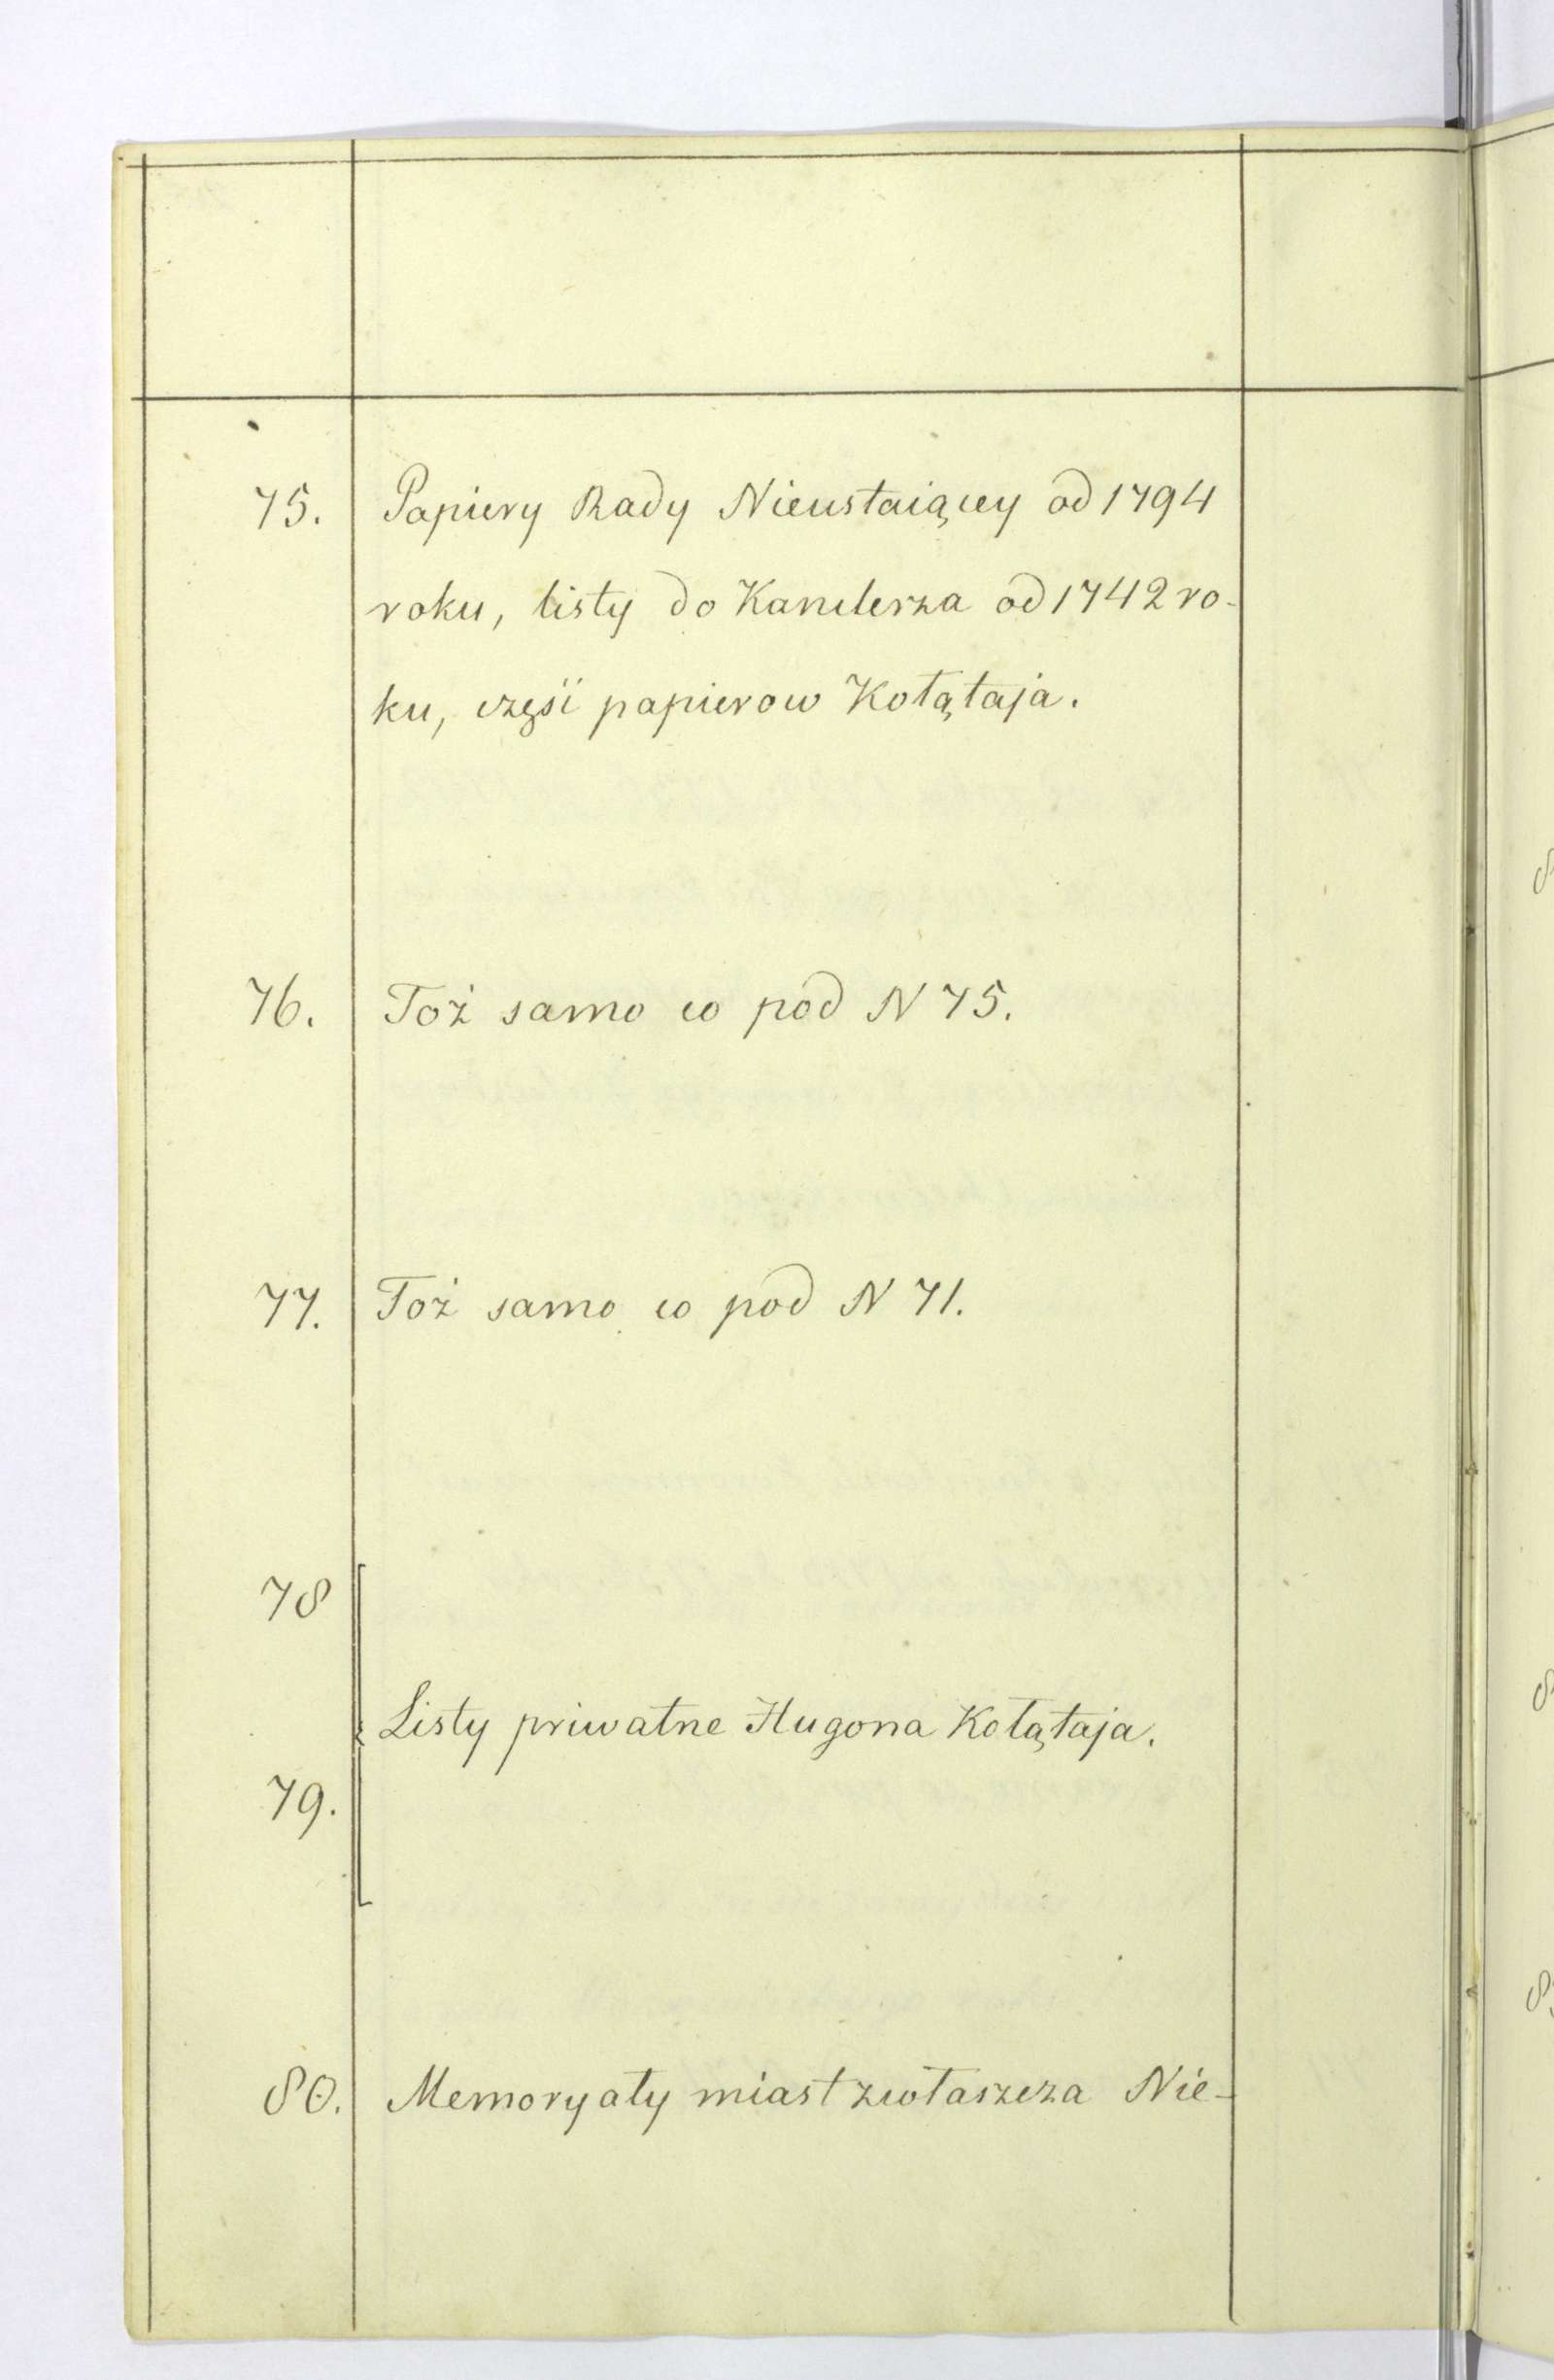 75. Papiery Rady Nieustaiącey od 1794
roku, listy do Kanclerza od 1742 ro-
ku, część papierow Kołątaja.
76. Toż samo co pod N 75.
77. Toż samo co pod N 71.
78
Listy priwatne Hugona Kołątaja.
79.
80. Memoryały miast zwłaszcza Nie-